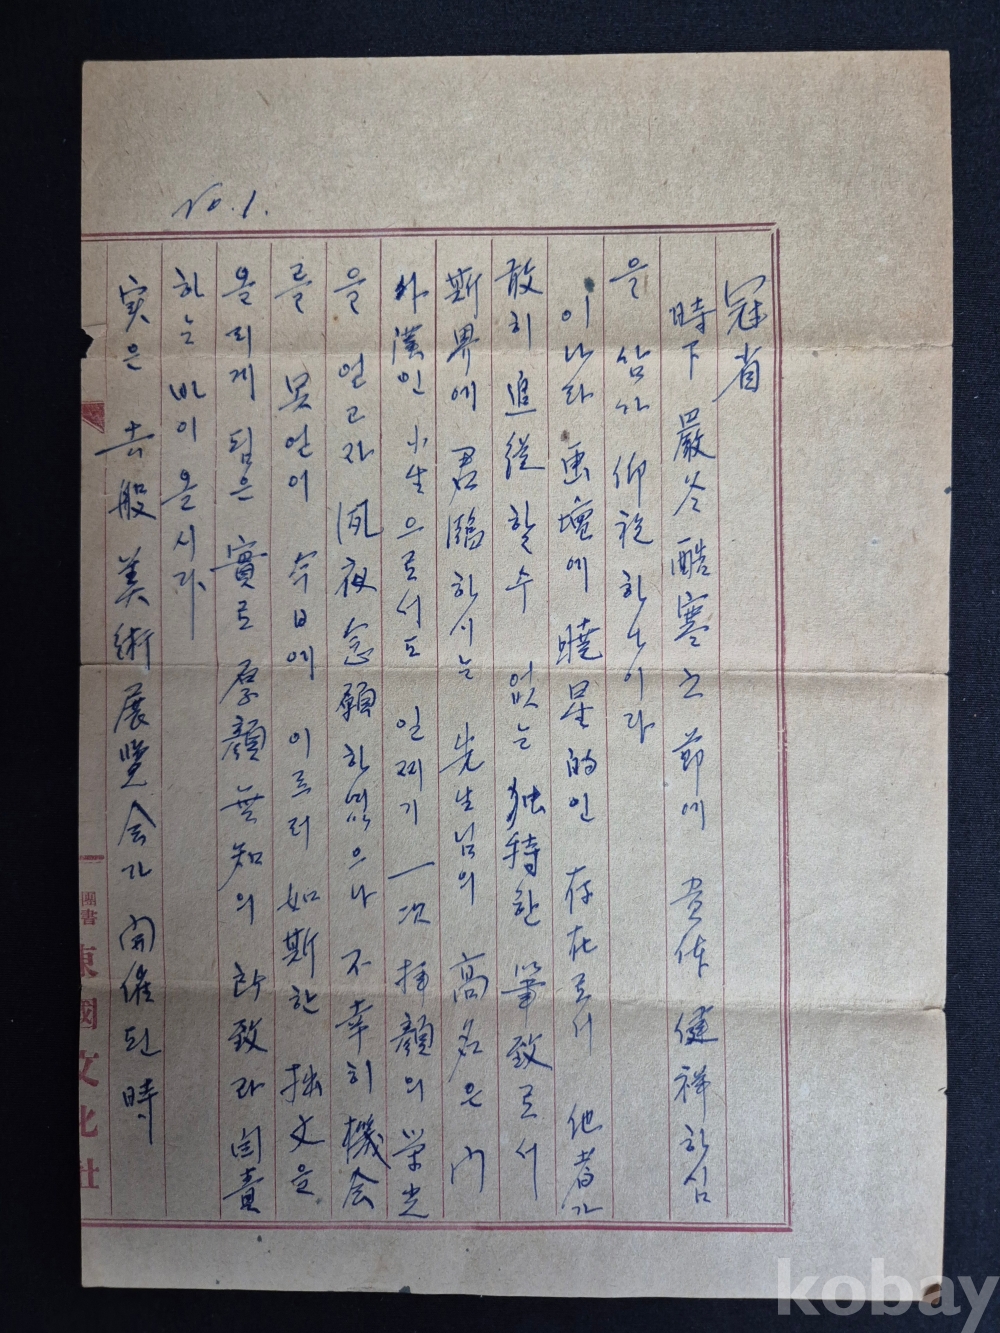 No.1.
冠省
時下 嚴冬 酷寒之節에 貴体 健祥하심
을 삼가 仰祝하나이다
이나라 画壇에 曉星的인 存在로서 他者가
敢히 追從할수 없는 独特한 筆致로서
斯界에 君臨하시는 先生님의 高名은 门
外漢인 小生으로서도 일찌기 一次 拜顔의 栄光
을 얻고자 夙夜念願하였으나 不幸히 機会
를 못얻어 今日에 이르러 如斯한 拙文을
올리게 됨은 實로 厚顔無知의 所致라 自責
하는 바이올시다
実은 去般 美術展覽会가 開催된 時
圖書
東國文化社
kobay